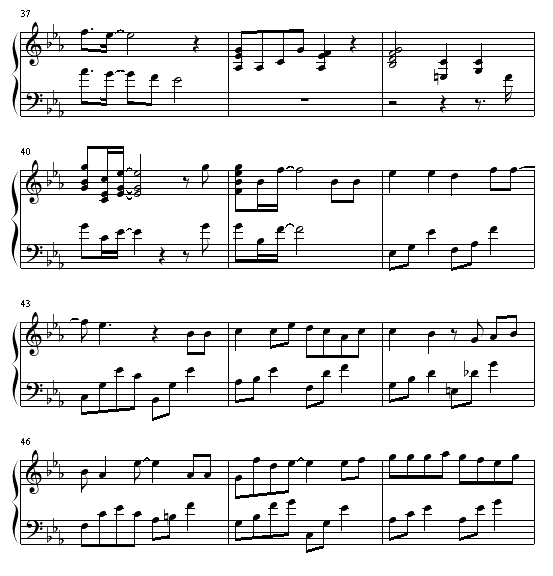 37
40
43
46